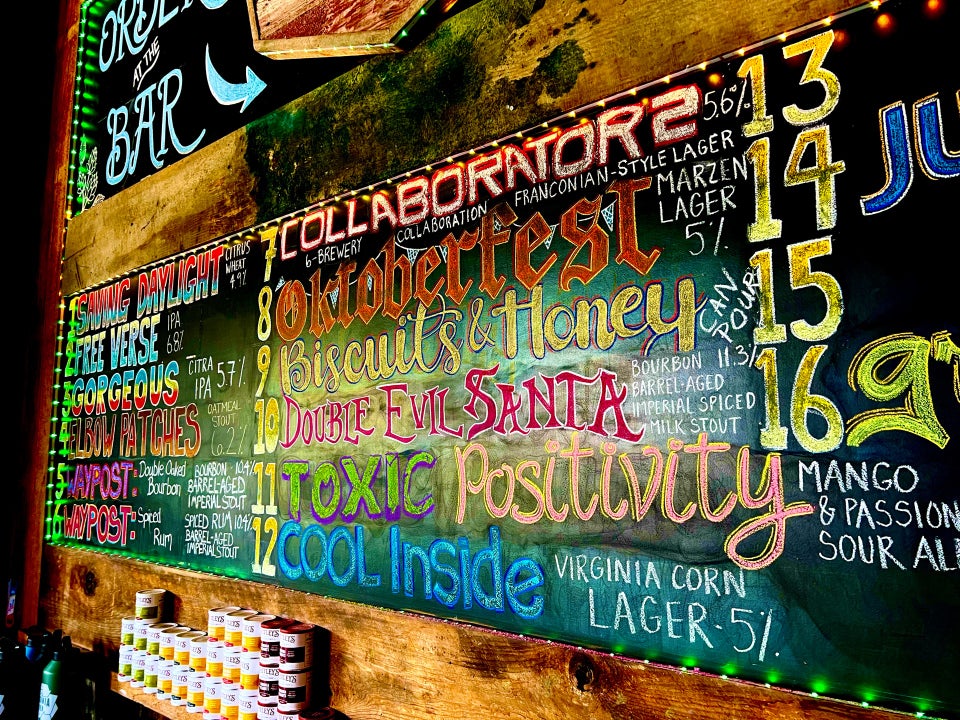 ORDER
AT THE
BAR
1 SAVING DAYLIGHT CITRUS WHEAT 4.9%
2 FREE VERSE IPA 6.8%
3 GORGEOUS CITRA IPA 5.7%
4 ELBOW PATCHES OATMEAL STOUT 6.2%
5 WAYPOST: Double Oaked Bourbon BOURBON BARREL-AGED IMPERIAL STOUT 10.4%
6 WAYPOST: Spiced Rum SPICED RUM BARREL-AGED IMPERIAL STOUT 10.4%
7 COLLABORATOR 2 5.6%
6-BREWERY COLLABORATION FRANCONIAN-STYLE LAGER
8 Oktoberfest MARZEN LAGER 5%
9 Biscuits & Honey CAN POUR
10 DOUBLE EVIL SANTA BOURBON 11.3% BARREL-AGED IMPERIAL SPICED MILK STOUT
11 TOXIC Positivity MANGO & PASSION SOUR
12 COOL Inside VIRGINIA CORN LAGER - 5%
13
14
15
16